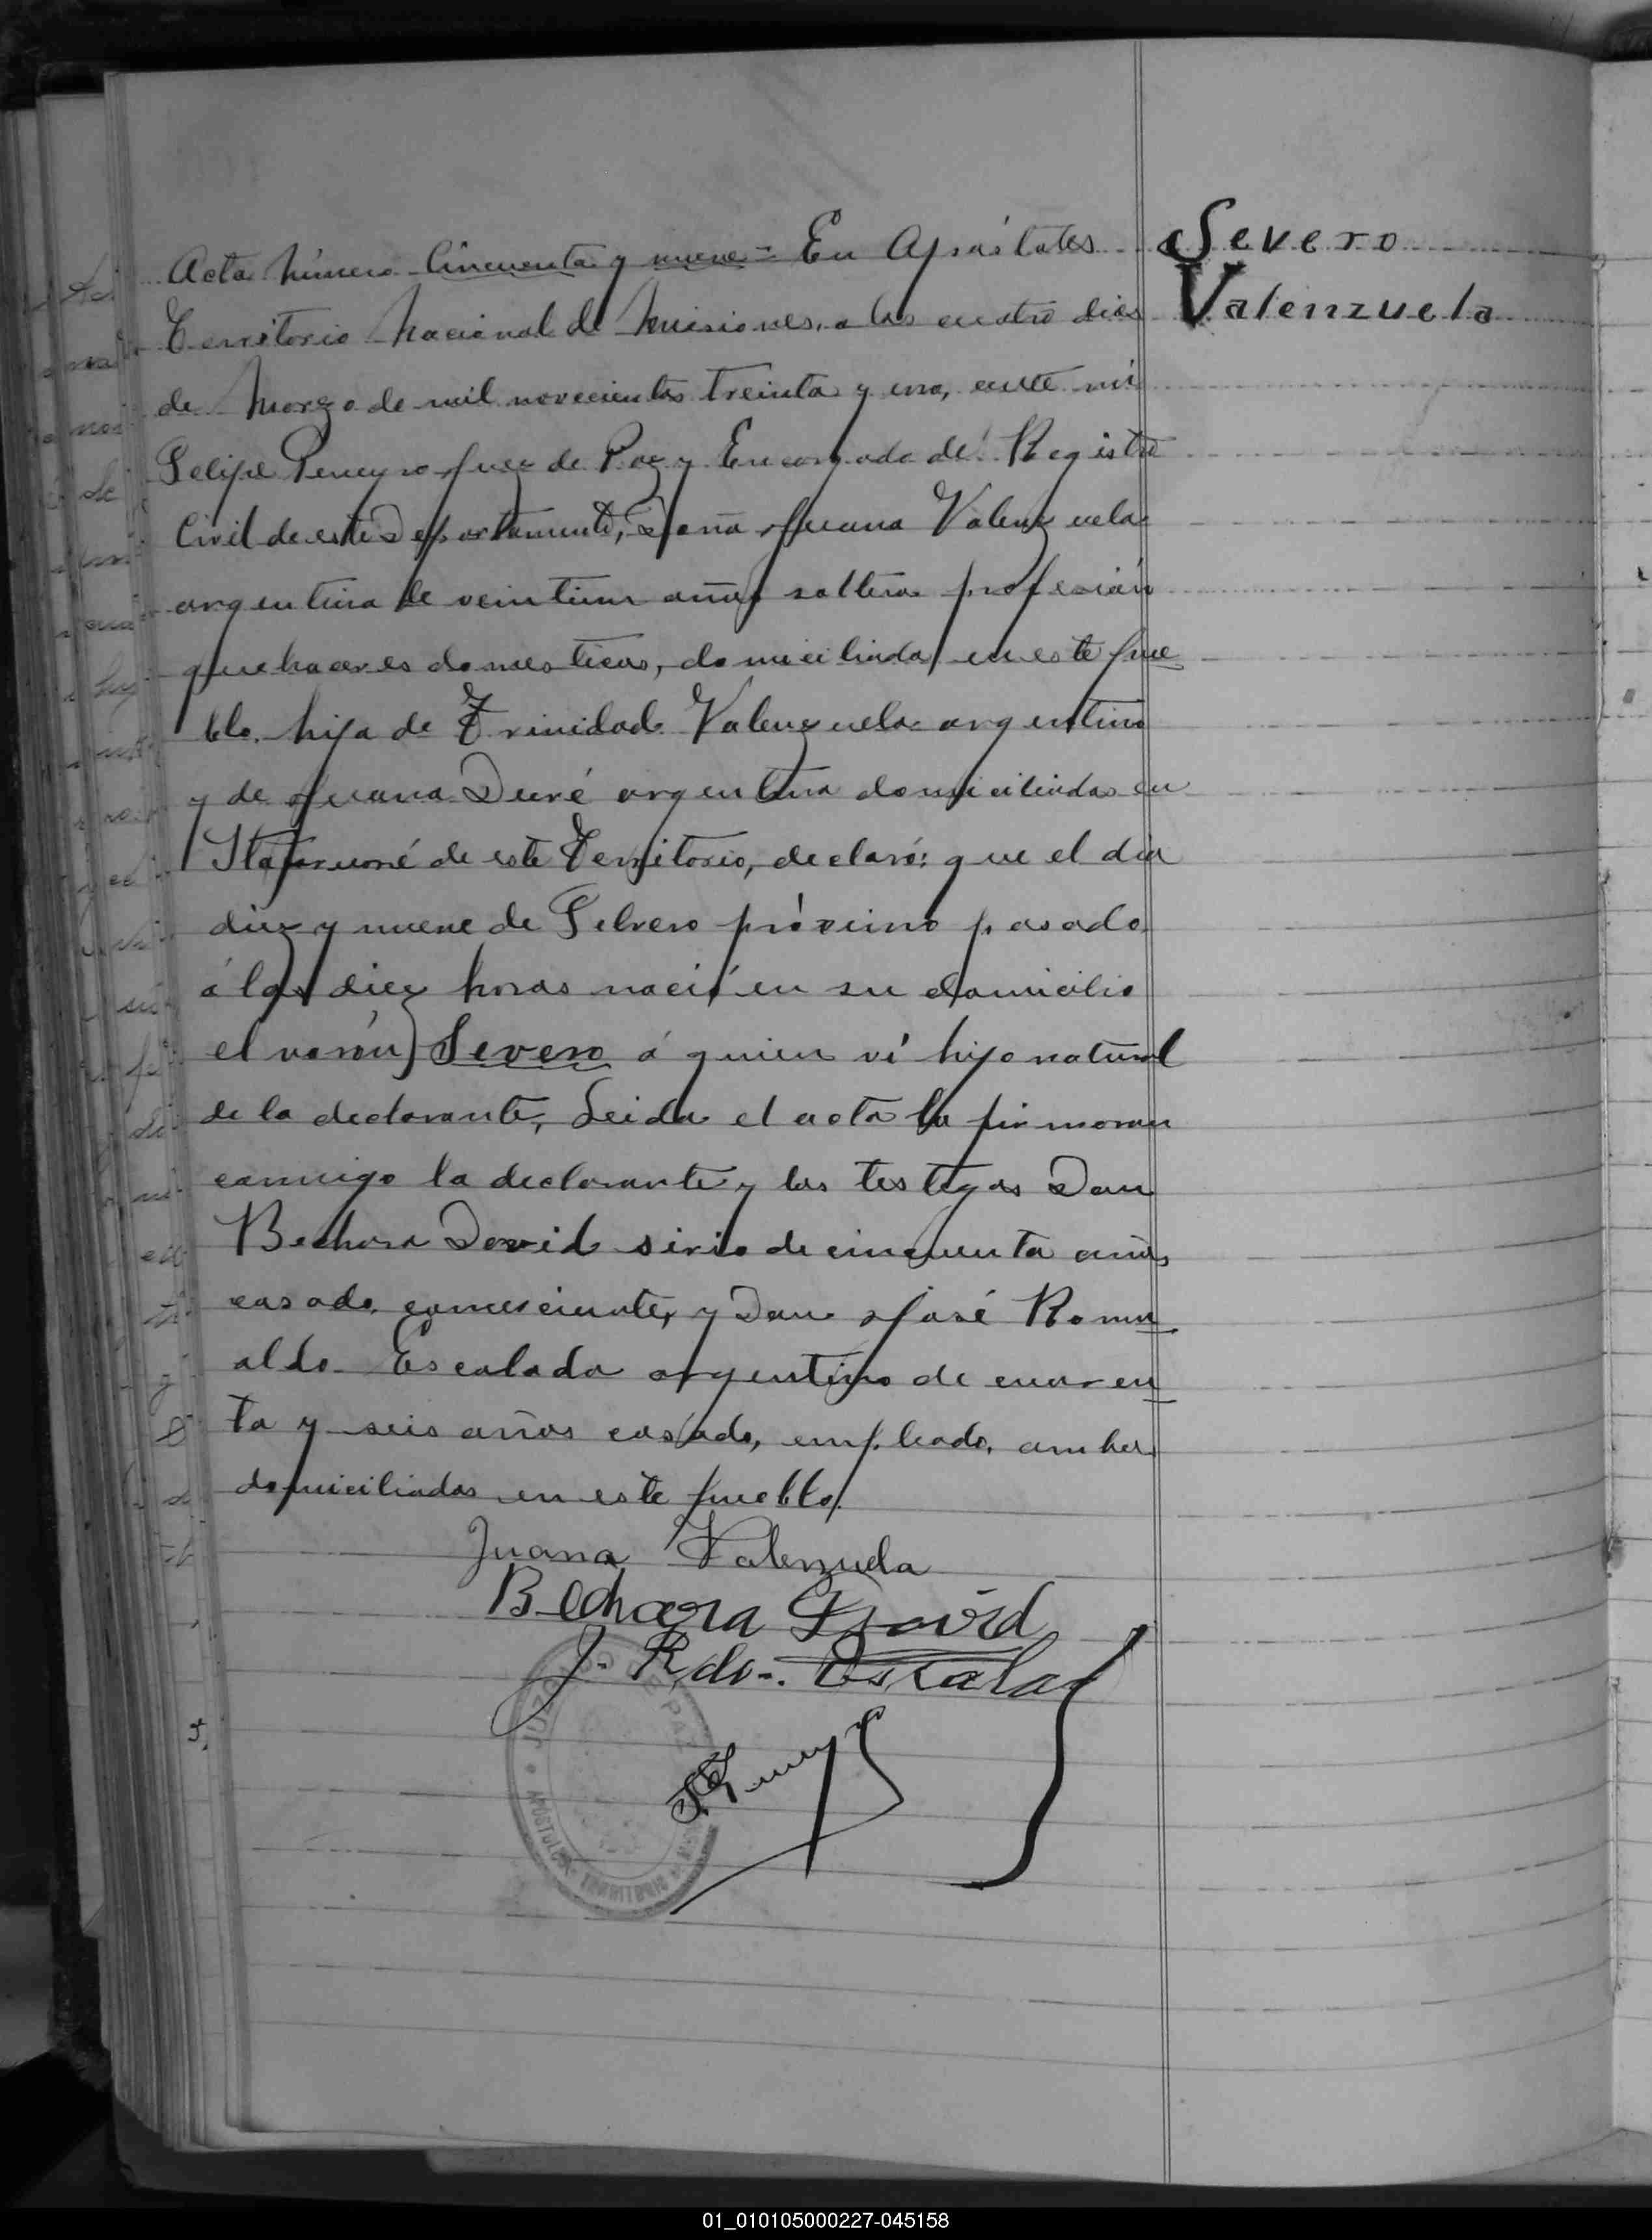 Severo
Valenzuela
Acta número Cincuenta y nueve = En Apóstoles
Territorio Nacional de Misiones, a los cuatro dias
de Marzo de mil novecientos treinta y uno, ante mí
Felipe Peneyro Juez de Paz y Encargado del Registro
Civil de este Departamento, Doña Juana Valenzuela
argentina de veintiun años soltera profesión
quehaceres domesticos, domiciliada en este pue
blo, hija de Trinidad Valenzuela argentino
y de Juana Duré argentina domiciliados en
de este Territorio, declaró: que el dia
diez y nueve de Febrero próximo pasado
á las diez horas nació en su domicilio
el varón Severo á quien ví hijo natural
de la declarante, Leida el acta la firmaron
conmigo la declarante y los testigos Don
Bechara David sirio de cincuenta años
casado, comerciante, y Don José Romu
aldo Escalada argentino de cuaren
ta y seis años casado, empleado, ambos
domiciliados en este pueblo.
Juana Valenzuela
Bechara David
J. Rdo. Escalada
JUZGADO DE PAZ
APOSTOLES TERRITORIO
01_010105000227-045158